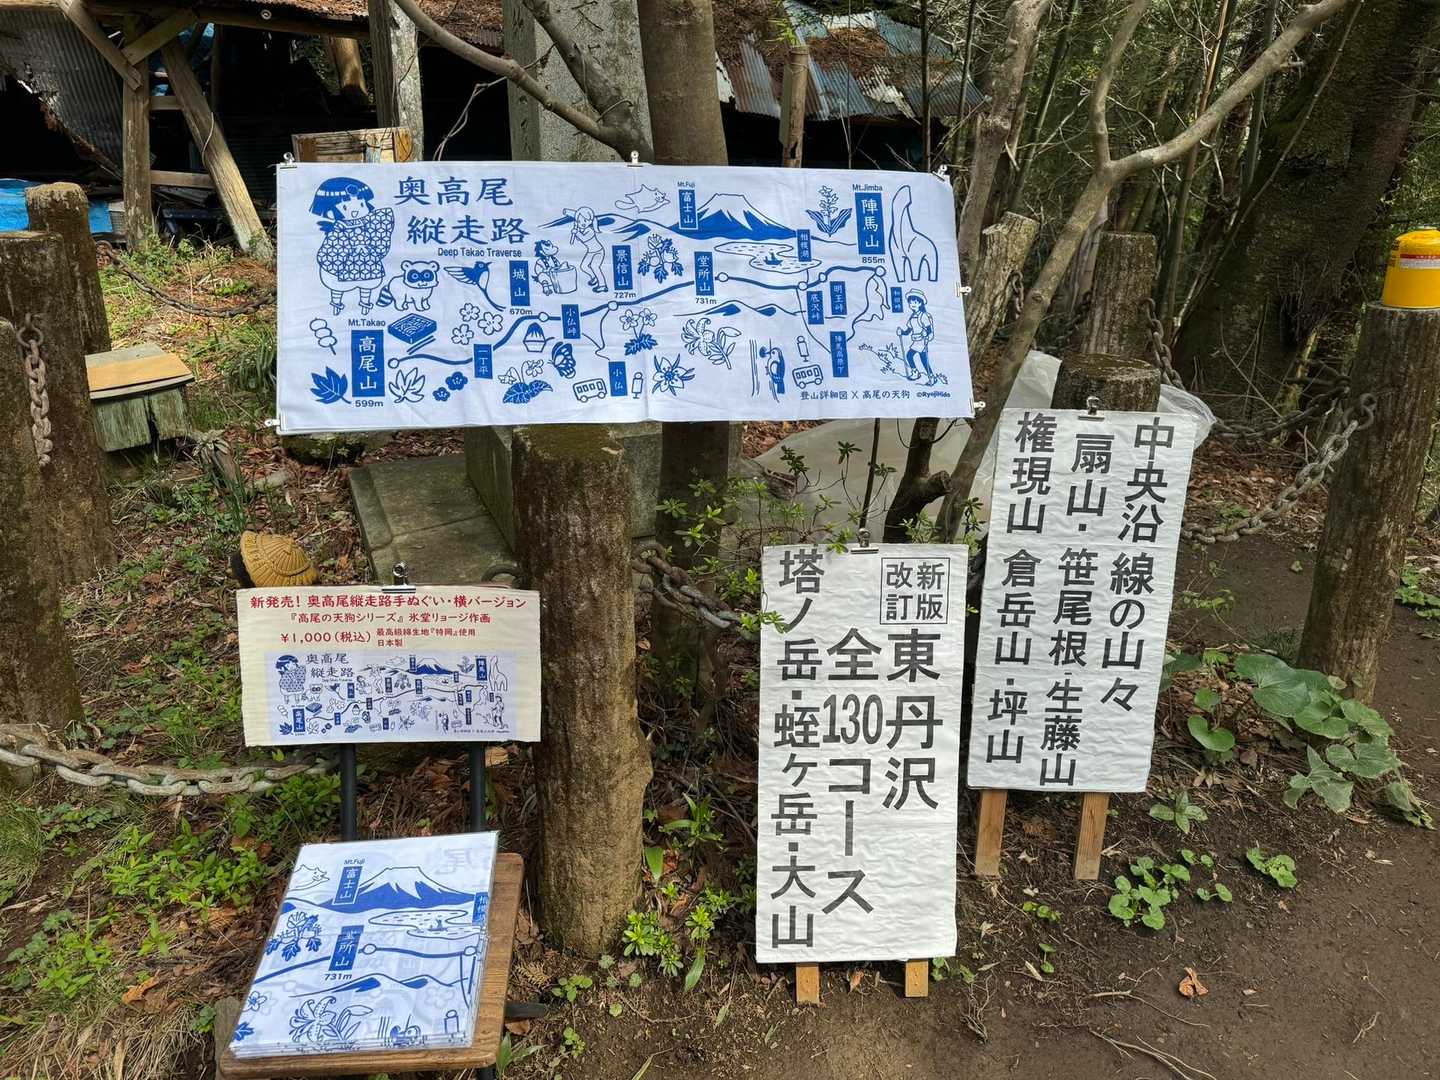 奥高尾
縦走路
Deep Takao Traverse
Mt.Takao
高尾山
599m
一丁平
城山
670m
小仏峠
小仏
景信山
727m
堂所山
731m
Mt.Fuji
富士山
相模湖
底沢峠
明王峠
陣馬高原下
和田峠
Mt.Jimba
陣馬山
855m
登山詳細図 X 高尾の天狗
©RyojiHido
新発売!奥高尾縦走路手ぬぐい・横バージョン
『高尾の天狗シリーズ』氷堂リョージ作画
¥1,000(税込)
最高級綿生地『特岡』使用
日本製
奥高尾
縦走路
Mt.Fuji
富士山
堂所山
731m
新版
改訂
東丹沢
全130コース
塔ノ岳・蛭ヶ岳・大山
中央沿線の山々
扇山・笹尾根・生藤山
権現山 倉岳山・坪山